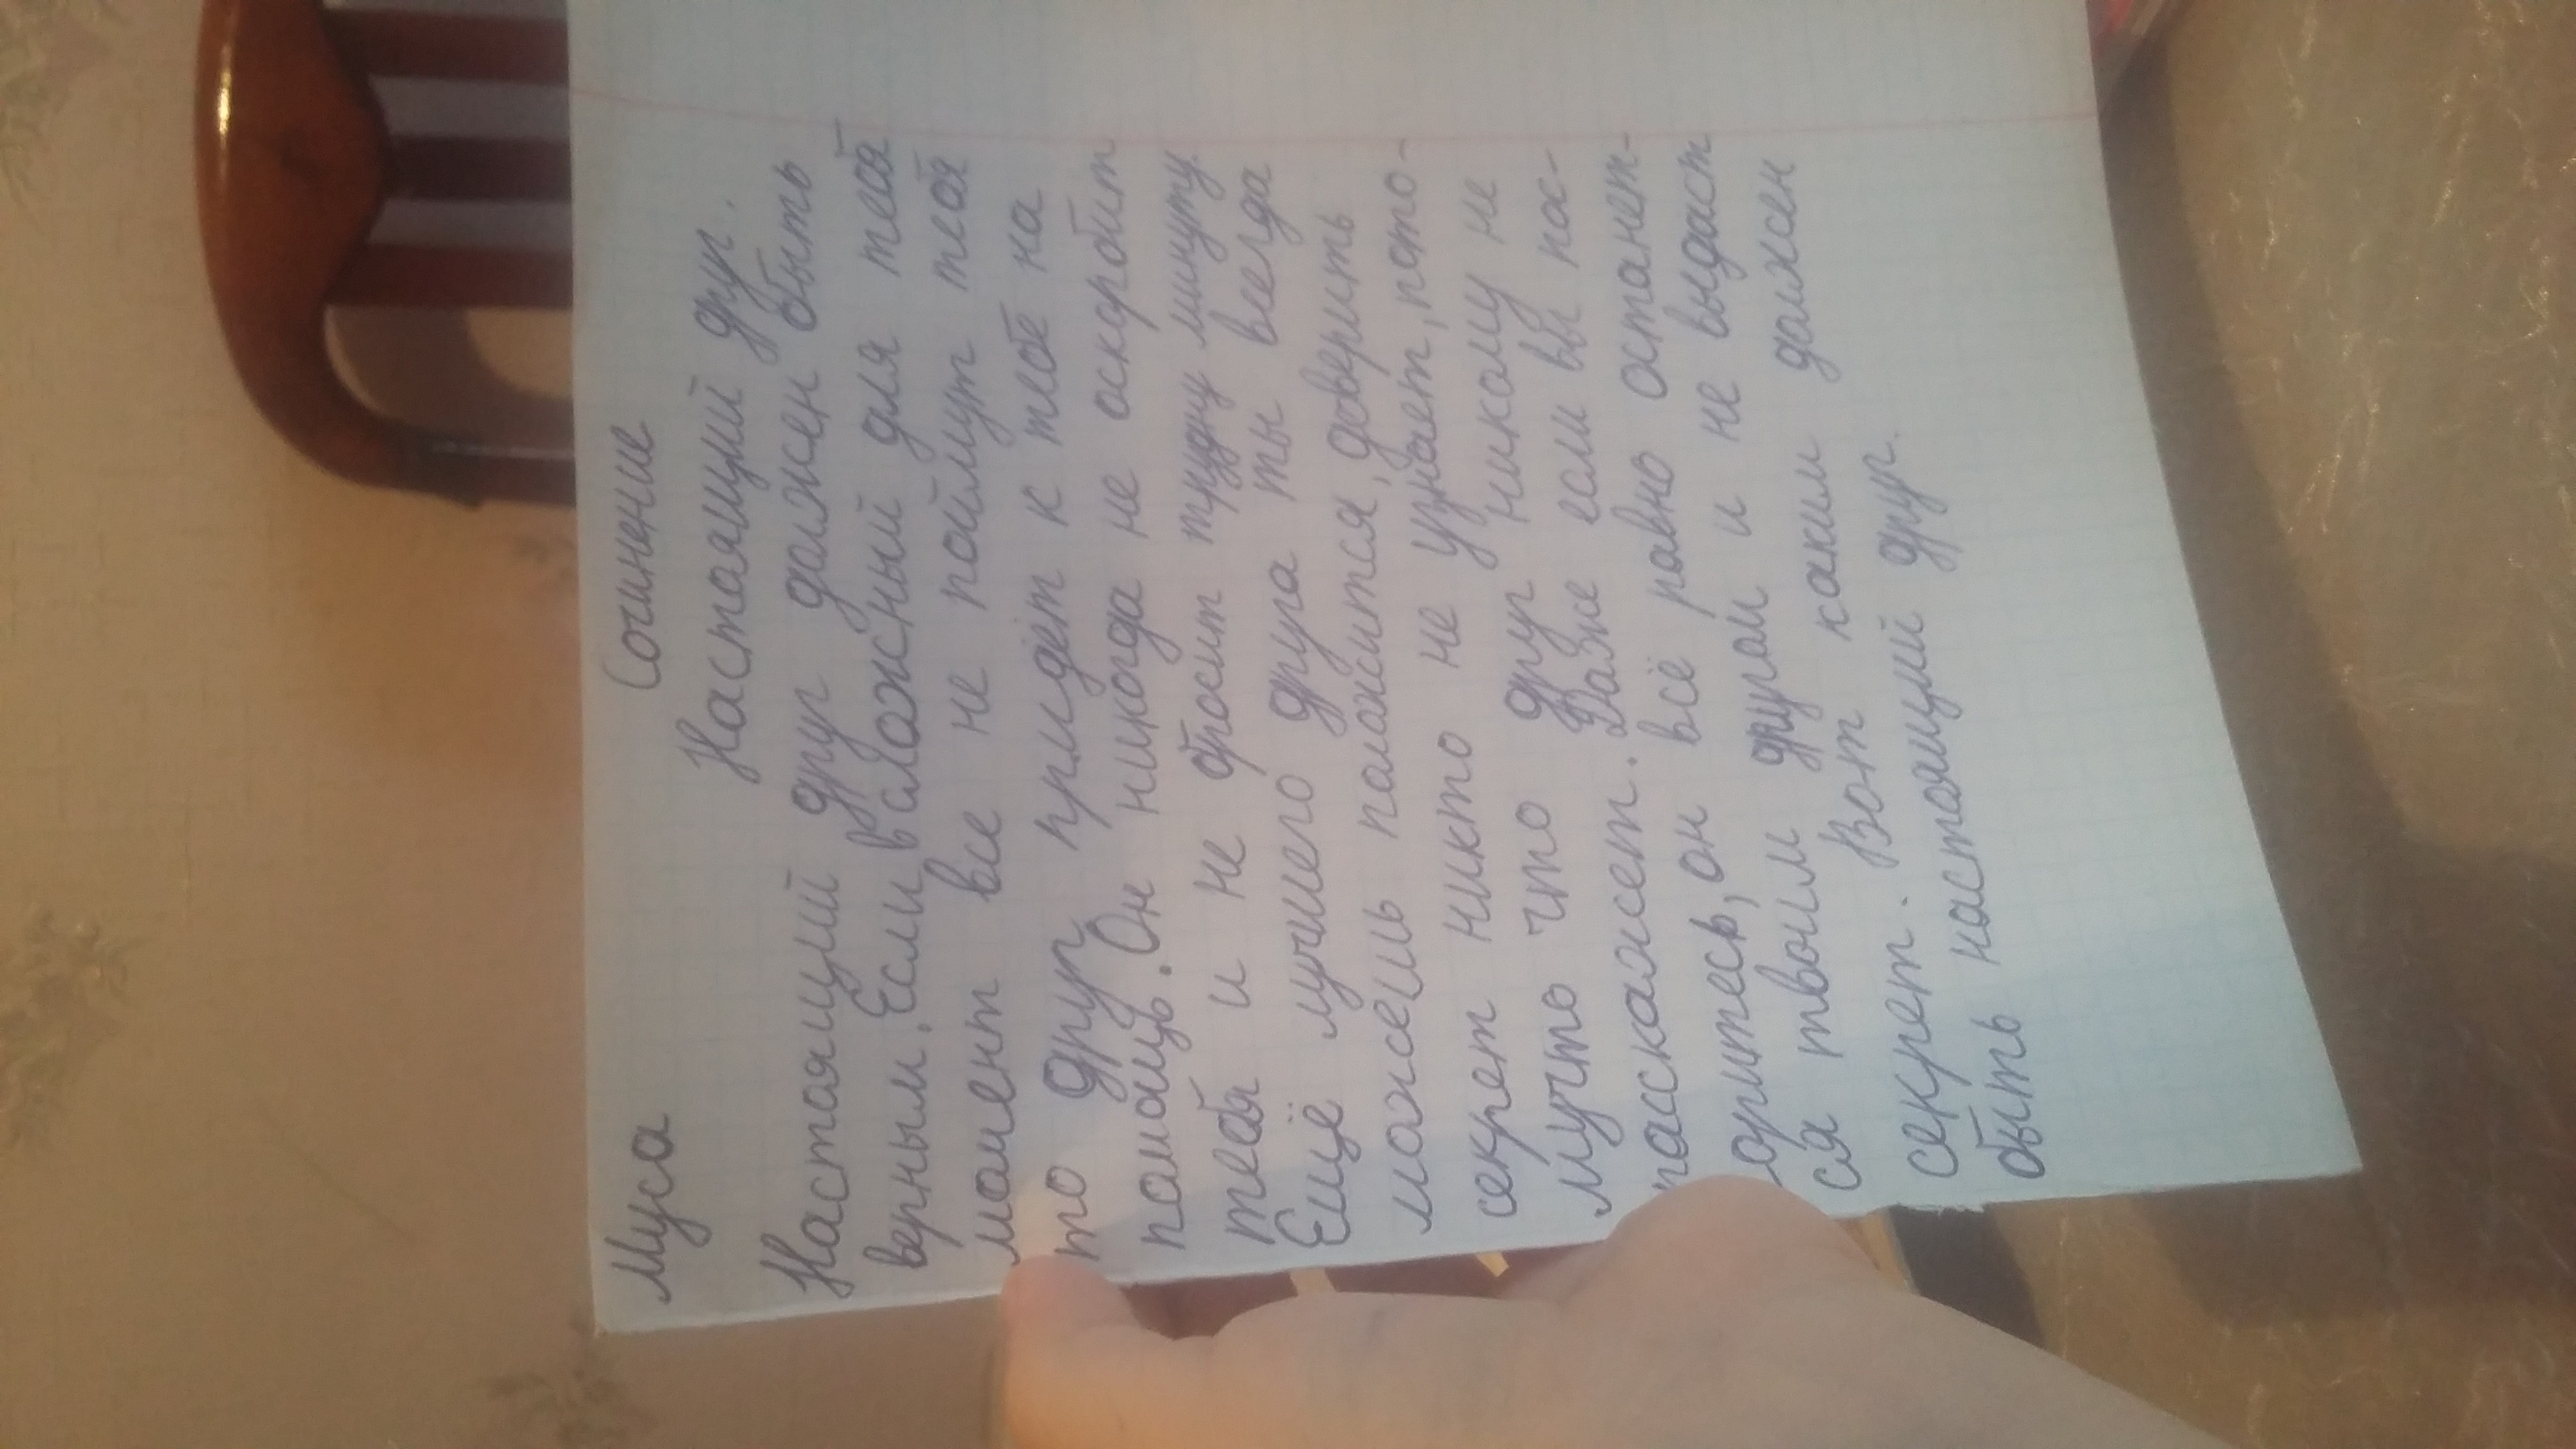 Муса Сочинение
Настоящий друг.
Настоящий друг должен быть
верным. Если в сложный для тебя
момент все не поймут тебя
то друг придёт к тебе на
помощь. Он никогда не оскорбит
тебя и не бросит трудну минуту.
Ещё лучшего друга ты всегда
можешь положится, доверить
секрет никто не узнает, пото-
мучто что друг никому не
расскажет. Даже если вы пос-
оритесь, он всё равно останет-
ся твоим другом и не выдаст
секрет. Вот каким должен
быть настоящий друг.